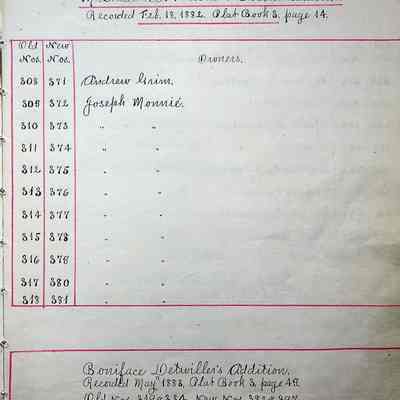 Recorded Feb. 13, 1882. Plat Book 3, page 14.
Old New
Nos. Nos. Owners.
308 371 Andrew Grim.
309 372 Joseph Monnié.
310 373 " "
311 374 " "
312 375 " "
313 376 " "
314 377 " "
315 378 " "
316 379 " "
317 380 " "
318 381 " "
Boniface Detwiller's Addition.
Recorded May 1883, Plat Book 3, page 48
Old Nos. New Nos.